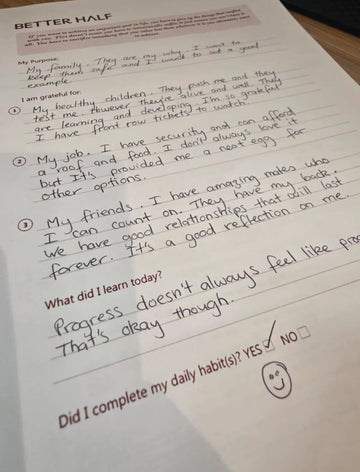 BETTER HALF
If you want to achieve an important goal in life, you have to give up the things that conflict
with you. This doesn't mean you have to
all. This have to sacrifice something that you value less than whatever it is you ultimately want
to achieve.
My Purpose:
My family. They are my why. I want to
keep them safe and I want to set a good
example.
I am grateful for:
1 My healthy children. They push me and they
test me. However they're alive and well. They
are learning and developing. I'm so grateful
I have front row tickets to watch.
2 My job. I have security and can afford
a roof and food. I don't always love it
but it's provided me a neat egg for
other options.
3 My friends. I have amazing mates who
I can count on. They have my back.
We have good relationships that will last
forever. It's a good reflection on me.
What did I learn today?
Progress doesn't always feel like pro
That's okay though.
Did I complete my daily habit(s)? YES ☑ NO ☐